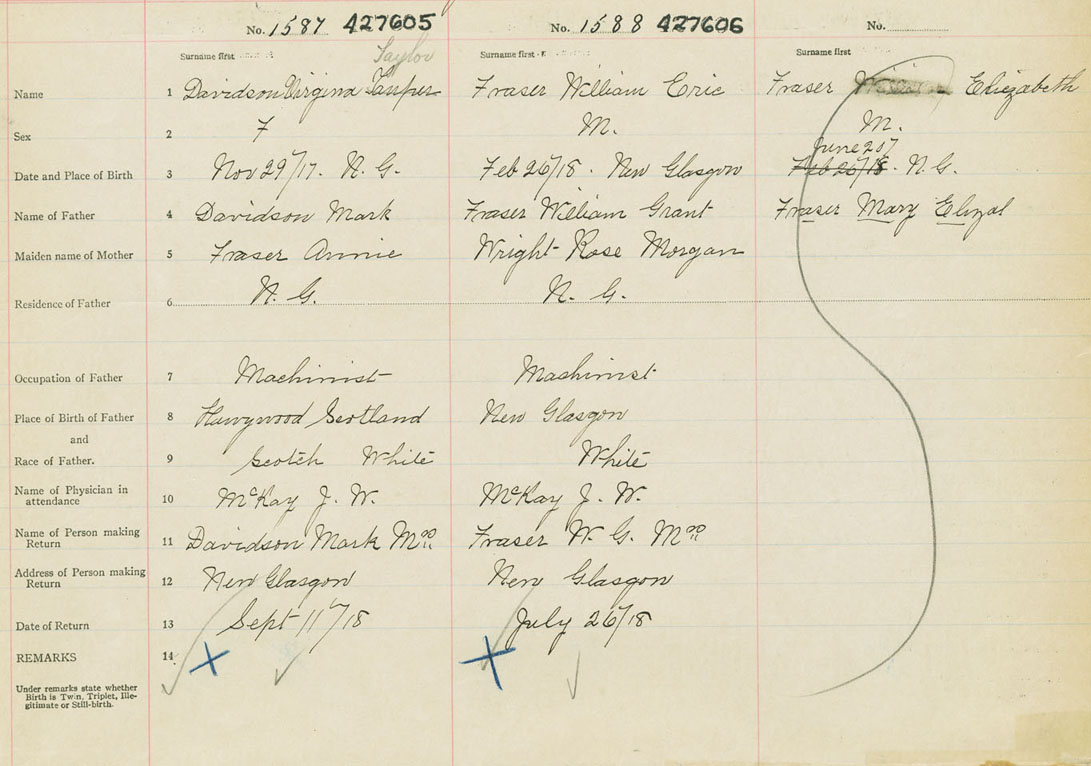 No. 1587 427605 No. 1588 427606 No.
Surname first Taylor Surname first Surname first
Name 1 Davidson Virginia Fraser William Eric Fraser Elizabeth
Sex 2 F M. M.
June 20/17
Date and Place of Birth 3 Nov 29/17. N. G. Feb 26/18. New Glasgow Feb 26/18. N. G.
Name of Father 4 Davidson Mark Fraser William Grant Fraser Mary Elizab
Maiden name of Mother 5 Fraser Annie Wright Rose Morgan
Residence of Father 6 N. G. N. G.
Occupation of Father 7 Machinist Mashinist
Place of Birth of Father 8 Scotland New Glasgow
and
Race of Father. 9 Scotch White White
Name of Physician in attendance 10 McKay J. W. McKay J. W.
Name of Person making Return 11 Davidson Mark Mrs. Fraser W. G. Mrs.
Address of Person making Return 12 New Glasgow New Glasgow
Date of Return 13 Sept 11/18 July 26/18
REMARKS 14
Under remarks state whether
Birth is Twin, Triplet, Ille-
gitimate or Still-birth.